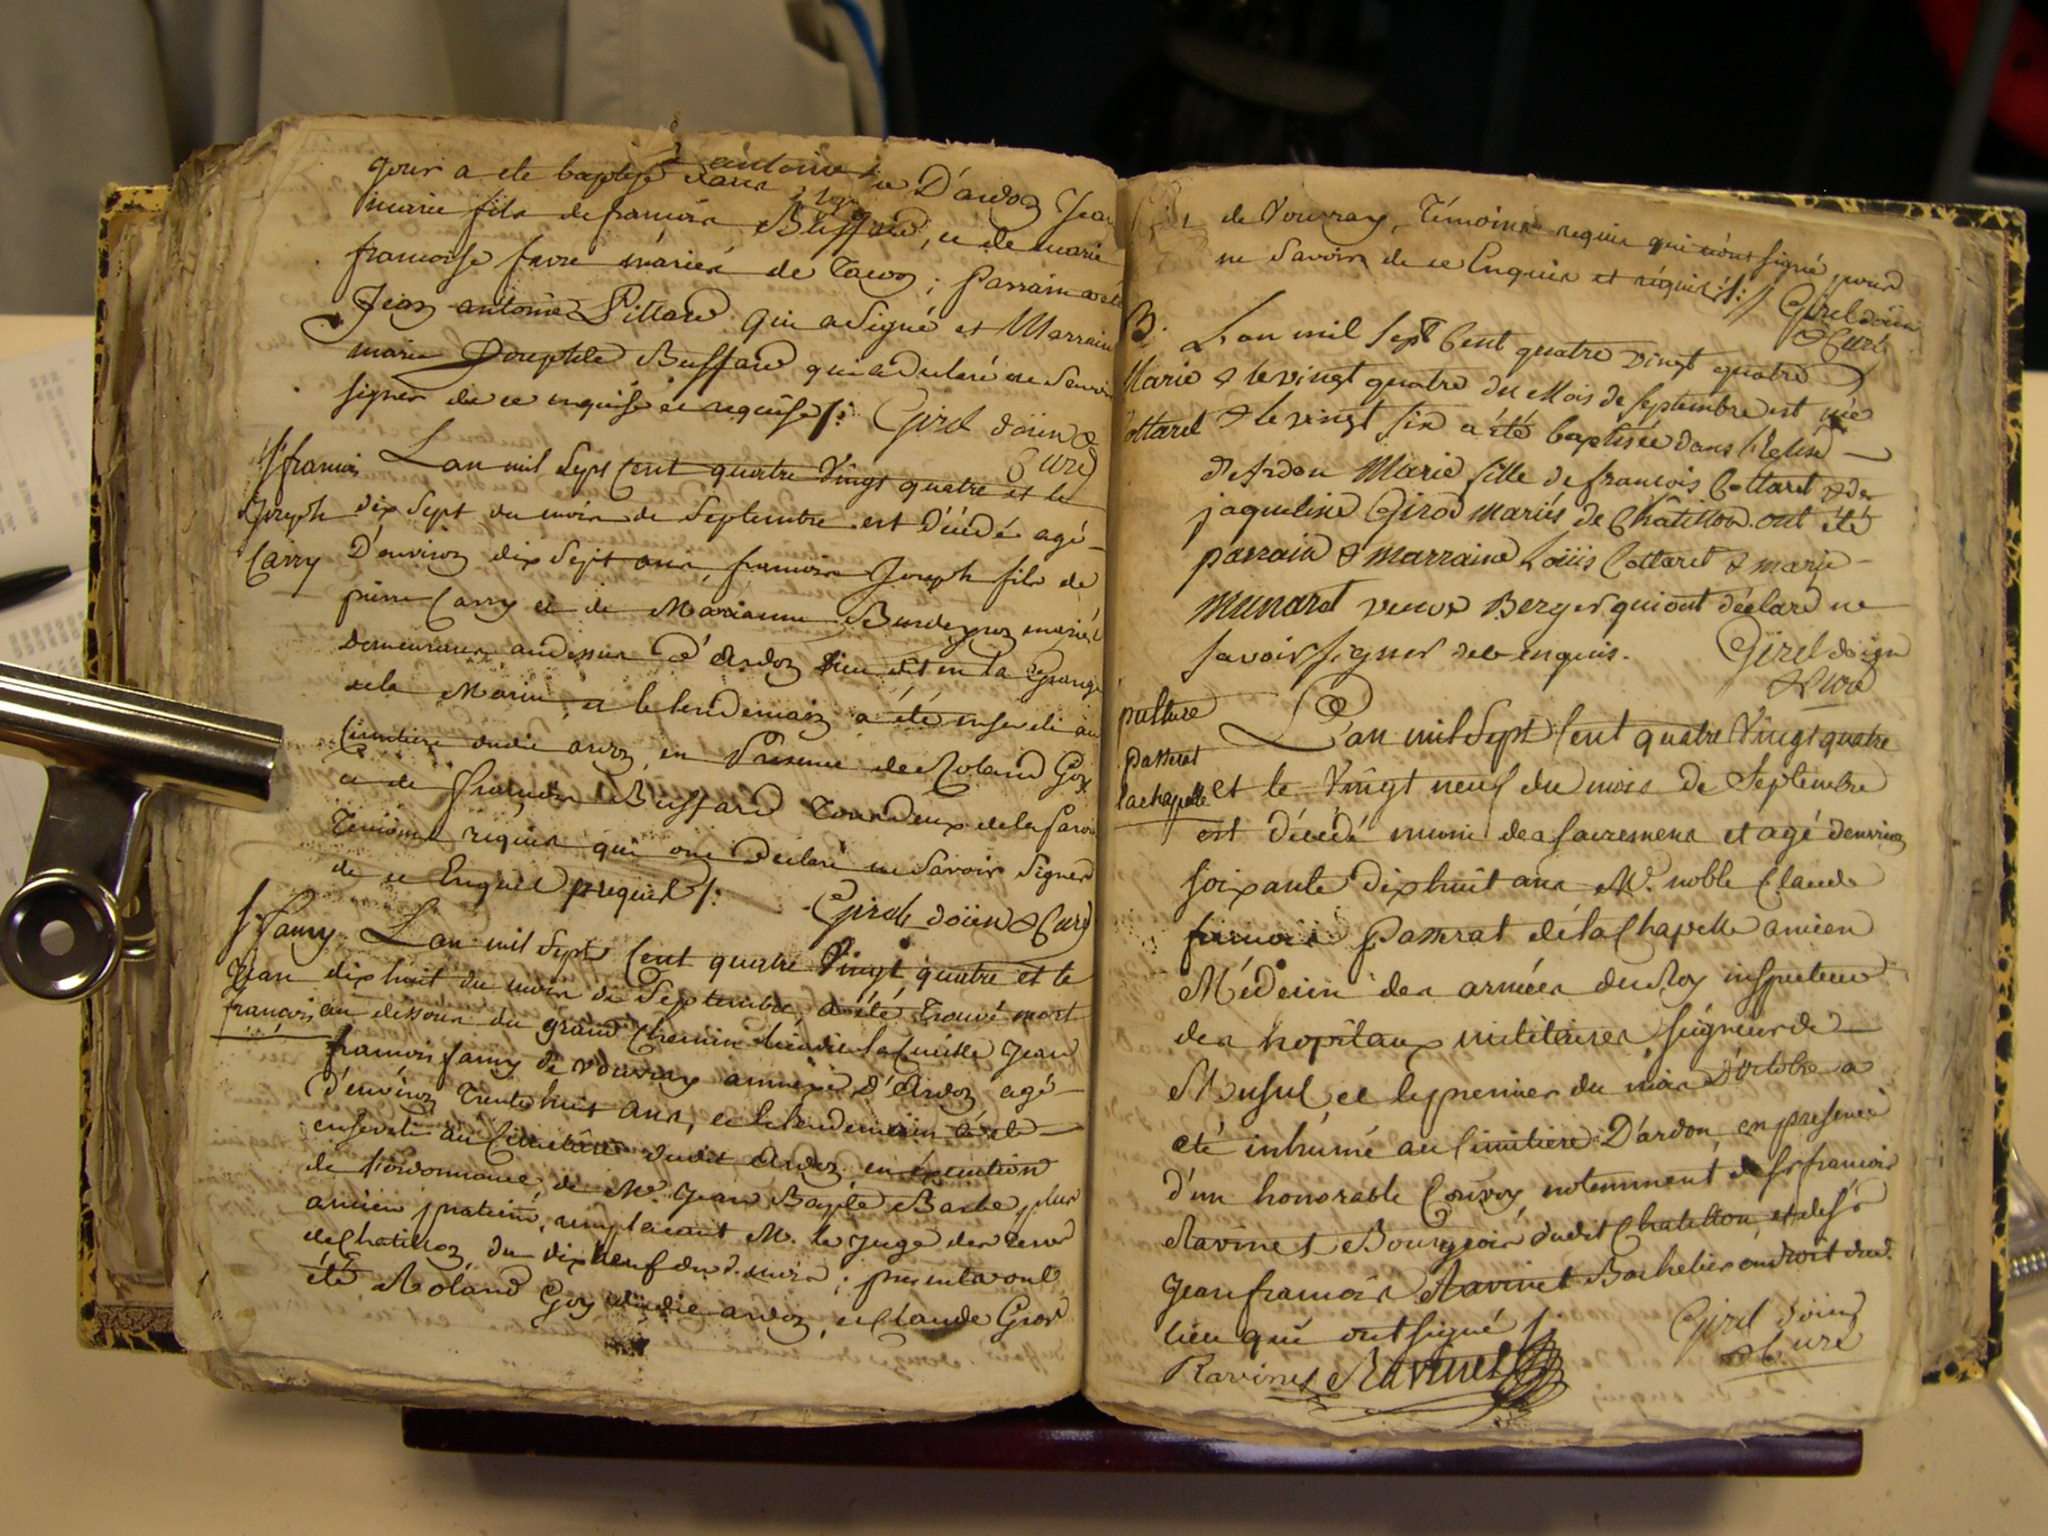 jour a ete baptisé dans D'ardon Jean
antoine
marie fils de françois Buffard, et de marie
françoise favre mariés de Tacon ; Parrain a été
Jean antoine Pittard qui a signé et Marraine
marie Josephte Buffard qui a declaré ne savoir
signer de ce enquise et requise /: Girel doüen &
Curé
françois L'an mil sept cent quatre vingt quatre et le
Joseph dix sept du mois de septembre est décédé agé
Carry D'environ dix sept ans, françois Joseph fils de
pierre Carry et de Marianne mariés
demeurans au dessus d'Ardon lieu dit en la Grange
de la Marin, et le lendemain a été enseveli au
cimetiere dudit ardon, en Présence de Roland Goy
et de françois Buffard Tous deux de la paroisse
Temoins requis qui ont declaré ne savoir signer
de ce Enquis et requis /: Girel doüen & Curé
S. famy L'an mil sept cent quatre vingt quatre et le
Jean dix huit du mois de Septembre, a été Trouvé mort
françois au dessous du grand chemin lieu dit Jean
françois famy de vouvray annexe D'Ardon agé
D'environ Trente huit ans, et le lendemain a été
enseveli au Cimetière dudit Ardon en éxecution
de l'ordonnance de Mr. Jean Baptte Barbe, plus
ancien praticien, remplacant M. le juge des terres
de Chatillon du dix neuf du d. mois ; presents ont
été Roland Goy dudit ardon, et Claude Girod
de Vouvray, Témoins requis qui n'ont signé pour
ne savoir de ce Enquis et requis /: Girel doüen
& Curé
B. L'an mil sept Cent quatre vingt quatre
Marie & le vingt quatre du Mois de septembre est née
Cottaret & le vingt six a été baptisée dans l'Eglise
d'Ardon Marie fille de françois Cottaret & de
jaqueline Girod mariés de Châtillon. ont été
parrain & marraine Loüis Cottaret & marie
Munaret veuve Berger qui ont déclaré ne
savoir signer de ce enquis. Girel doyen
& Curé
pulture L'an mil sept Cent quatre Vingt quatre
Passerat
lachapelle et le Vingt neuf du mois de Septembre
est décédé muni des sacremens et agé d'environ
soixante dix huit ans Mr. noble Claude
françois Passerat de la Chapelle ancien
Médecin des armées du Roy inspecteur
des hopitaux militaires, seigneur de
Musul, et le premier du mois D'Octobre a
eté inhumé au Cimitiere D'ardon, en presence
d'un honorable Convoy notemment de Sr françois
Ravinet Bourgeois dudit Chatillon, et de Sr
Jean françois Ravinet Bachelier en droit dud.
lieu qui ont signé /: Girel doüen
& Curé
Ravinet Ravinet